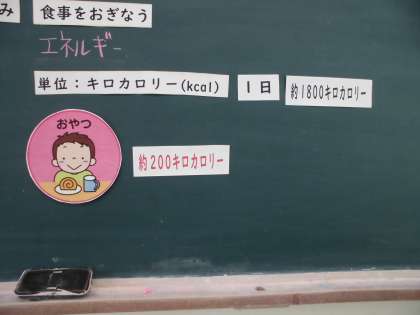 み
食事をおぎなう
エネルギー
単位：キロカロリー(kcal)
1日
約1800キロカロリー
おやつ
約200キロカロリー